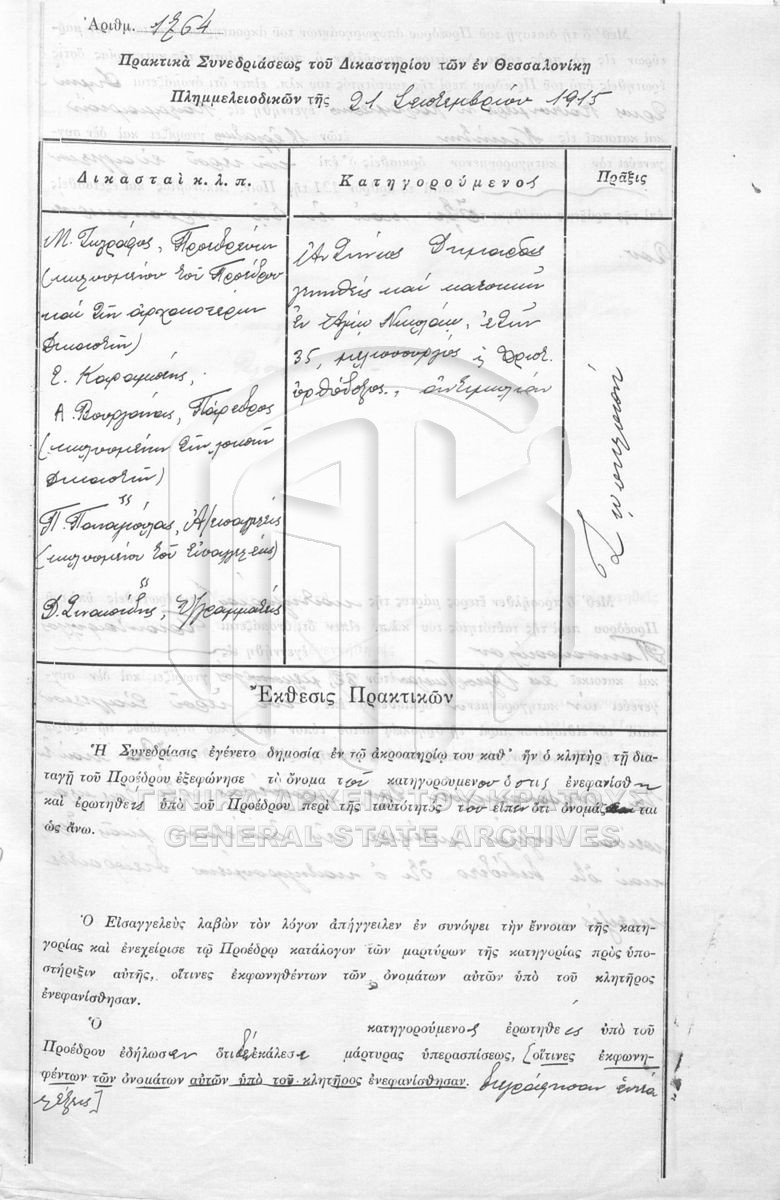 Ἀριθμ. 1764
Πρακτικὰ Συνεδριάσεως τοῦ Δικαστηρίου τῶν ἐν Θεσσαλονίκῃ
Πλημμελειοδικῶν τῆς 21 Σεπτεμβρίου 1915
Δικασταὶ κ. λ. π.
Μ. Ζωγράφος, Προεδρεύων
(κωλυομένου τοῦ Προέδρου
καὶ τῶν ἀρχαιοτέρων
Δικαστῶν)
Πάρεδρος
(κωλυομένων τῶν τακτικῶν
Δικαστῶν)
Π. Ἀντεισαγγελεὺς
(κωλυομένου τοῦ Εἰσαγγελέως)
Δ. Ὑπ)γραμματεὺς
Κατηγορούμενος
Ἀντώνιος
γεννηθεὶς καὶ κατοικῶν
ἐν Ἁγίῳ Νικολάῳ, ἐτῶν
35, Χριστ.
ὀρθόδοξος,
Πρᾶξις
Ζωοκλοπή
Ἔκθεσις Πρακτικῶν
Ἡ Συνεδρίασις ἐγένετο δημοσίᾳ ἐν τῷ ἀκροατηρίῳ του καθ’ ἣν ὁ κλητὴρ τῇ δια-
ταγῇ τοῦ Προέδρου ἐξεφώνησε τὸ ὄνομα τοῦ κατηγορουμένου ὅστις ἐνεφανίσθη
καὶ ἐρωτηθεὶς ὑπὸ τοῦ Προέδρου περὶ τῆς ταυτότητός του εἶπεν ὅτι ὀνομάζεται
ὡς ἄνω.
Ὁ Εἰσαγγελεὺς λαβὼν τὸν λόγον ἀπήγγειλεν ἐν συνόψει τὴν ἔννοιαν τῆς κατη-
γορίας καὶ ἐνεχείρισε τῷ Προέδρῳ κατάλογον τῶν μαρτύρων τῆς κατηγορίας πρὸς ὑπο-
στήριξιν αὐτῆς, οἵτινες ἐκφωνηθέντων τῶν ὀνομάτων αὐτῶν ὑπὸ τοῦ κλητῆρος
ἐνεφανίσθησαν.
Ὁ κατηγορούμενος ἐρωτηθεὶς ὑπὸ τοῦ
Προέδρου ἐδήλωσεν ὅτι δὲ ἐκάλεσε μάρτυρας ὑπερασπίσεως, [οἵτινες ἐκφωνη-
θέντων τῶν ὀνομάτων αὐτῶν ὑπὸ τοῦ κλητῆρος ἐνεφανίσθησαν. διεγράφησαν ἑπτὰ
λέξεις]
ΓΕΝΙΚΑ ΑΡΧΕΙΑ ΤΟΥ ΚΡΑΤΟΥΣ
GENERAL STATE ARCHIVES